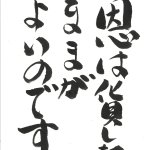 恩は貸した
ままが
よいのです